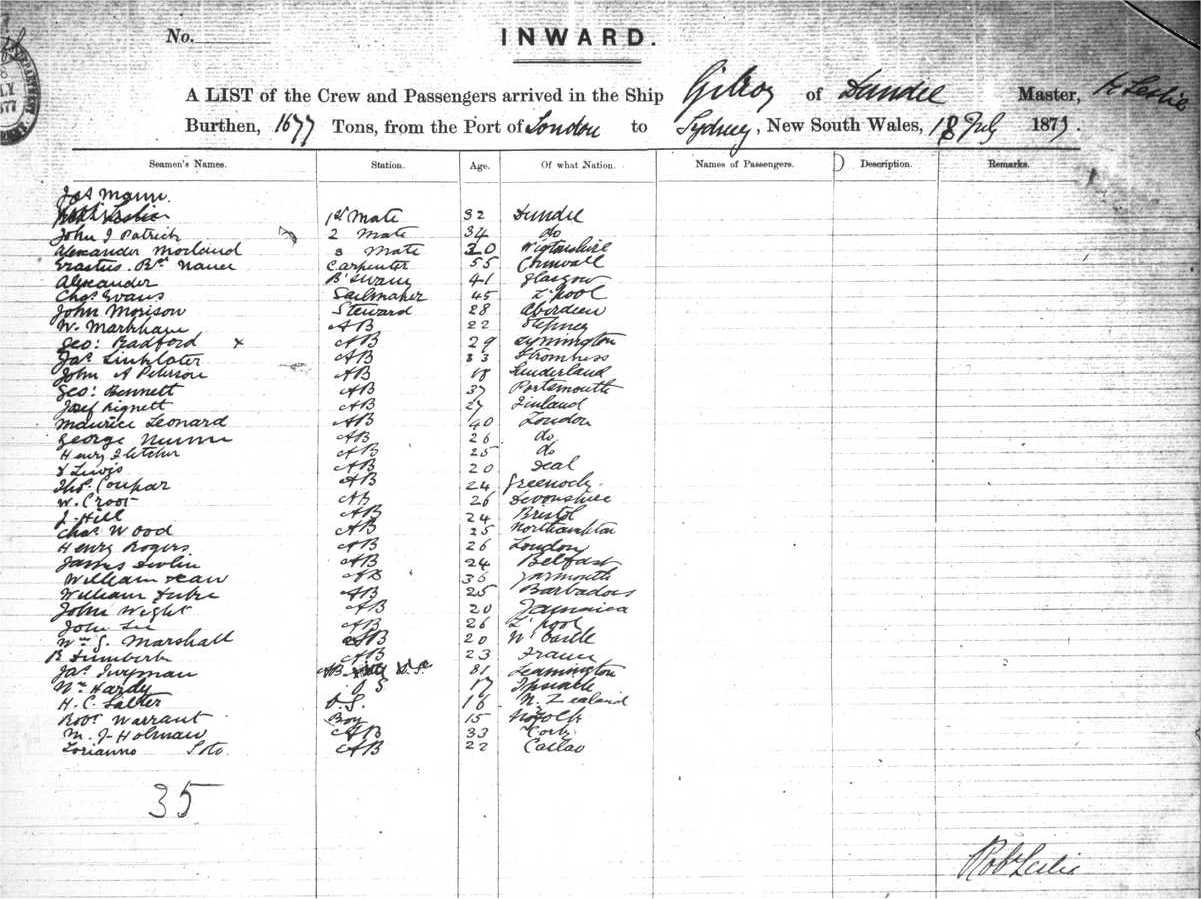 No.
INWARD.
A LIST of the Crew and Passengers arrived in the Ship Gilroy of Dundee Master, R Leslie
Burthen, 1677 Tons, from the Port of London to Sydney, New South Wales, 18 July 1877.
Seamen's Names. Station. Age. Of what Nation. Names of Passengers. Description. Remarks.
Jas Mann
1st Mate 32 Dundee
John J Patrick 2 Mate 34 do
Alexander Morland 3 Mate 20 Wigtonshire
Erastus Carpenter 55 Cornwall
Alexander B'swain 41 Glasgow
Chas Evans Sailmaker 45 L'pool
John Morison Steward 28 Aberdeen
W. Markham AB 22 Stepney
Geo: Radford x AB 29 Lymington
Jas Linklater AB 33 Stromness
John A Peterson AB 18 Sunderland
Geo: Bennett AB 37 Portsmouth
Josef AB 27 Finland
Maurice Leonard AB 40 London
George AB 26 do
Henry Fletcher AB 25 do
Lewis AB 20 Deal
Thos. Coupar AB 24 Greenock
W. Croot AB 26 Devonshire
J. Hill AB 24 Bristol
Chas Wood AB 25 Northampton
Henry Rogers AB 26 London
James Devlin AB 24 Belfast
William Dean AB 36 Yarmouth
William AB 25 Barbados
John Wight AB 20 Jamaica
John Lee AB 26 L'pool
Wm G. Marshall AB 20 N'Castle
B AB 23 France
Jas Twyman AB 31 Leamington
Wm Hardy O S 17 Ipswich
H. C. Salter O.S. 16 N. Zealand
Robt Warrant Boy 15 Norfolk
M. J. Holman AB 33 Cork
Lorianno Soto AB 22 Callao
35
Robt Leslie